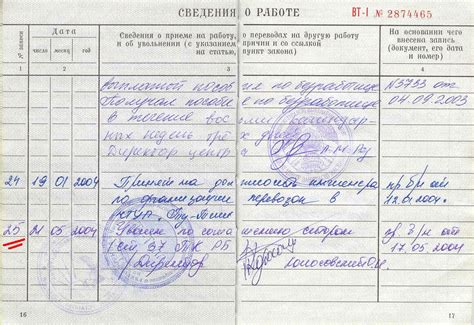 СВЕДЕНИЯ О РАБОТЕ
ВТ-I № 2874465
№ записи
Дата
число месяц год
Сведения о приеме на работу, переводах на другую работу
и об увольнении (с указанием причин и со ссылкой
на статью, пункт закона)
На основании чего
внесена запись
(документ, его дата
и номер)
1 2 3 4
выплатой пособия по безработице N3733 от
Получал пособие по безработице 04.09.2003
в течение восьми календар-
ных недель
Директор центра
24 19 01 2004 Принят на должность инженера
по организации перевозок в
25 21 05 2004 Уволен по соглашению сторон
ст 37 ТК РБ 17 05 2004
Директор
16
17